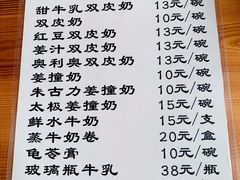 甜牛乳双皮奶 13元/碗
双皮奶 10元/碗
红豆双皮奶 13元/碗
姜汁双皮奶 13元/碗
奥利奥双皮奶 13元/碗
姜撞奶 10元/碗
朱古力姜撞奶 13元/碗
太极姜撞奶 10元/碗
鲜水牛奶 15元/支
蒸牛奶卷 20元/盒
龟苓膏 10元/碗
玻璃瓶牛乳 38元/瓶